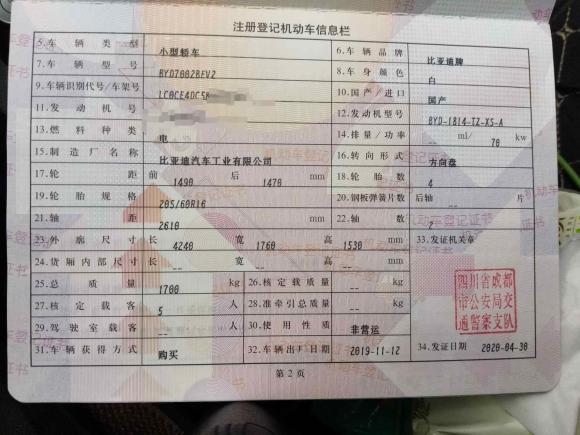 注册登记机动车信息栏
5.车辆类型 小型轿车 6.车辆品牌 比亚迪牌
7.车辆型号 BYD7002BEV2 8.车身颜色 白
9.车辆识别代号/车架号 LC0CE4DC5K 10.国产/进口 国产
11.发动机号 12.发动机型号 BYD-1814-TZ-XS-A
13.燃料种类 电 14.排量/功率 -- ml/ 70 kw
15.制造厂名称 比亚迪汽车工业有限公司 16.转向形式 方向盘
17.轮距 前 1490 后 1470 mm 18.轮胎数 4
19.轮胎规格 205/60R16 20.钢板弹簧片数 后轴 -- 片
21.轴距 2610 mm 22.轴数 2
23.外廓尺寸 长 4240 宽 1760 高 1530 mm 33.发证机关章
24.货厢内部尺寸 长 -- 宽 -- 高 -- mm
25.总质量 1700 kg 26.核定载质量 -- kg
27.核定载客 5 人 28.准牵引总质量 -- kg
29.驾驶室载客 -- 人 30.使用性质 非营运
四川省成都
市公安局交
通警察支队
31.车辆获得方式 购买 32.车辆出厂日期 2019-11-12 34.发证日期 2020-04-30
第2页